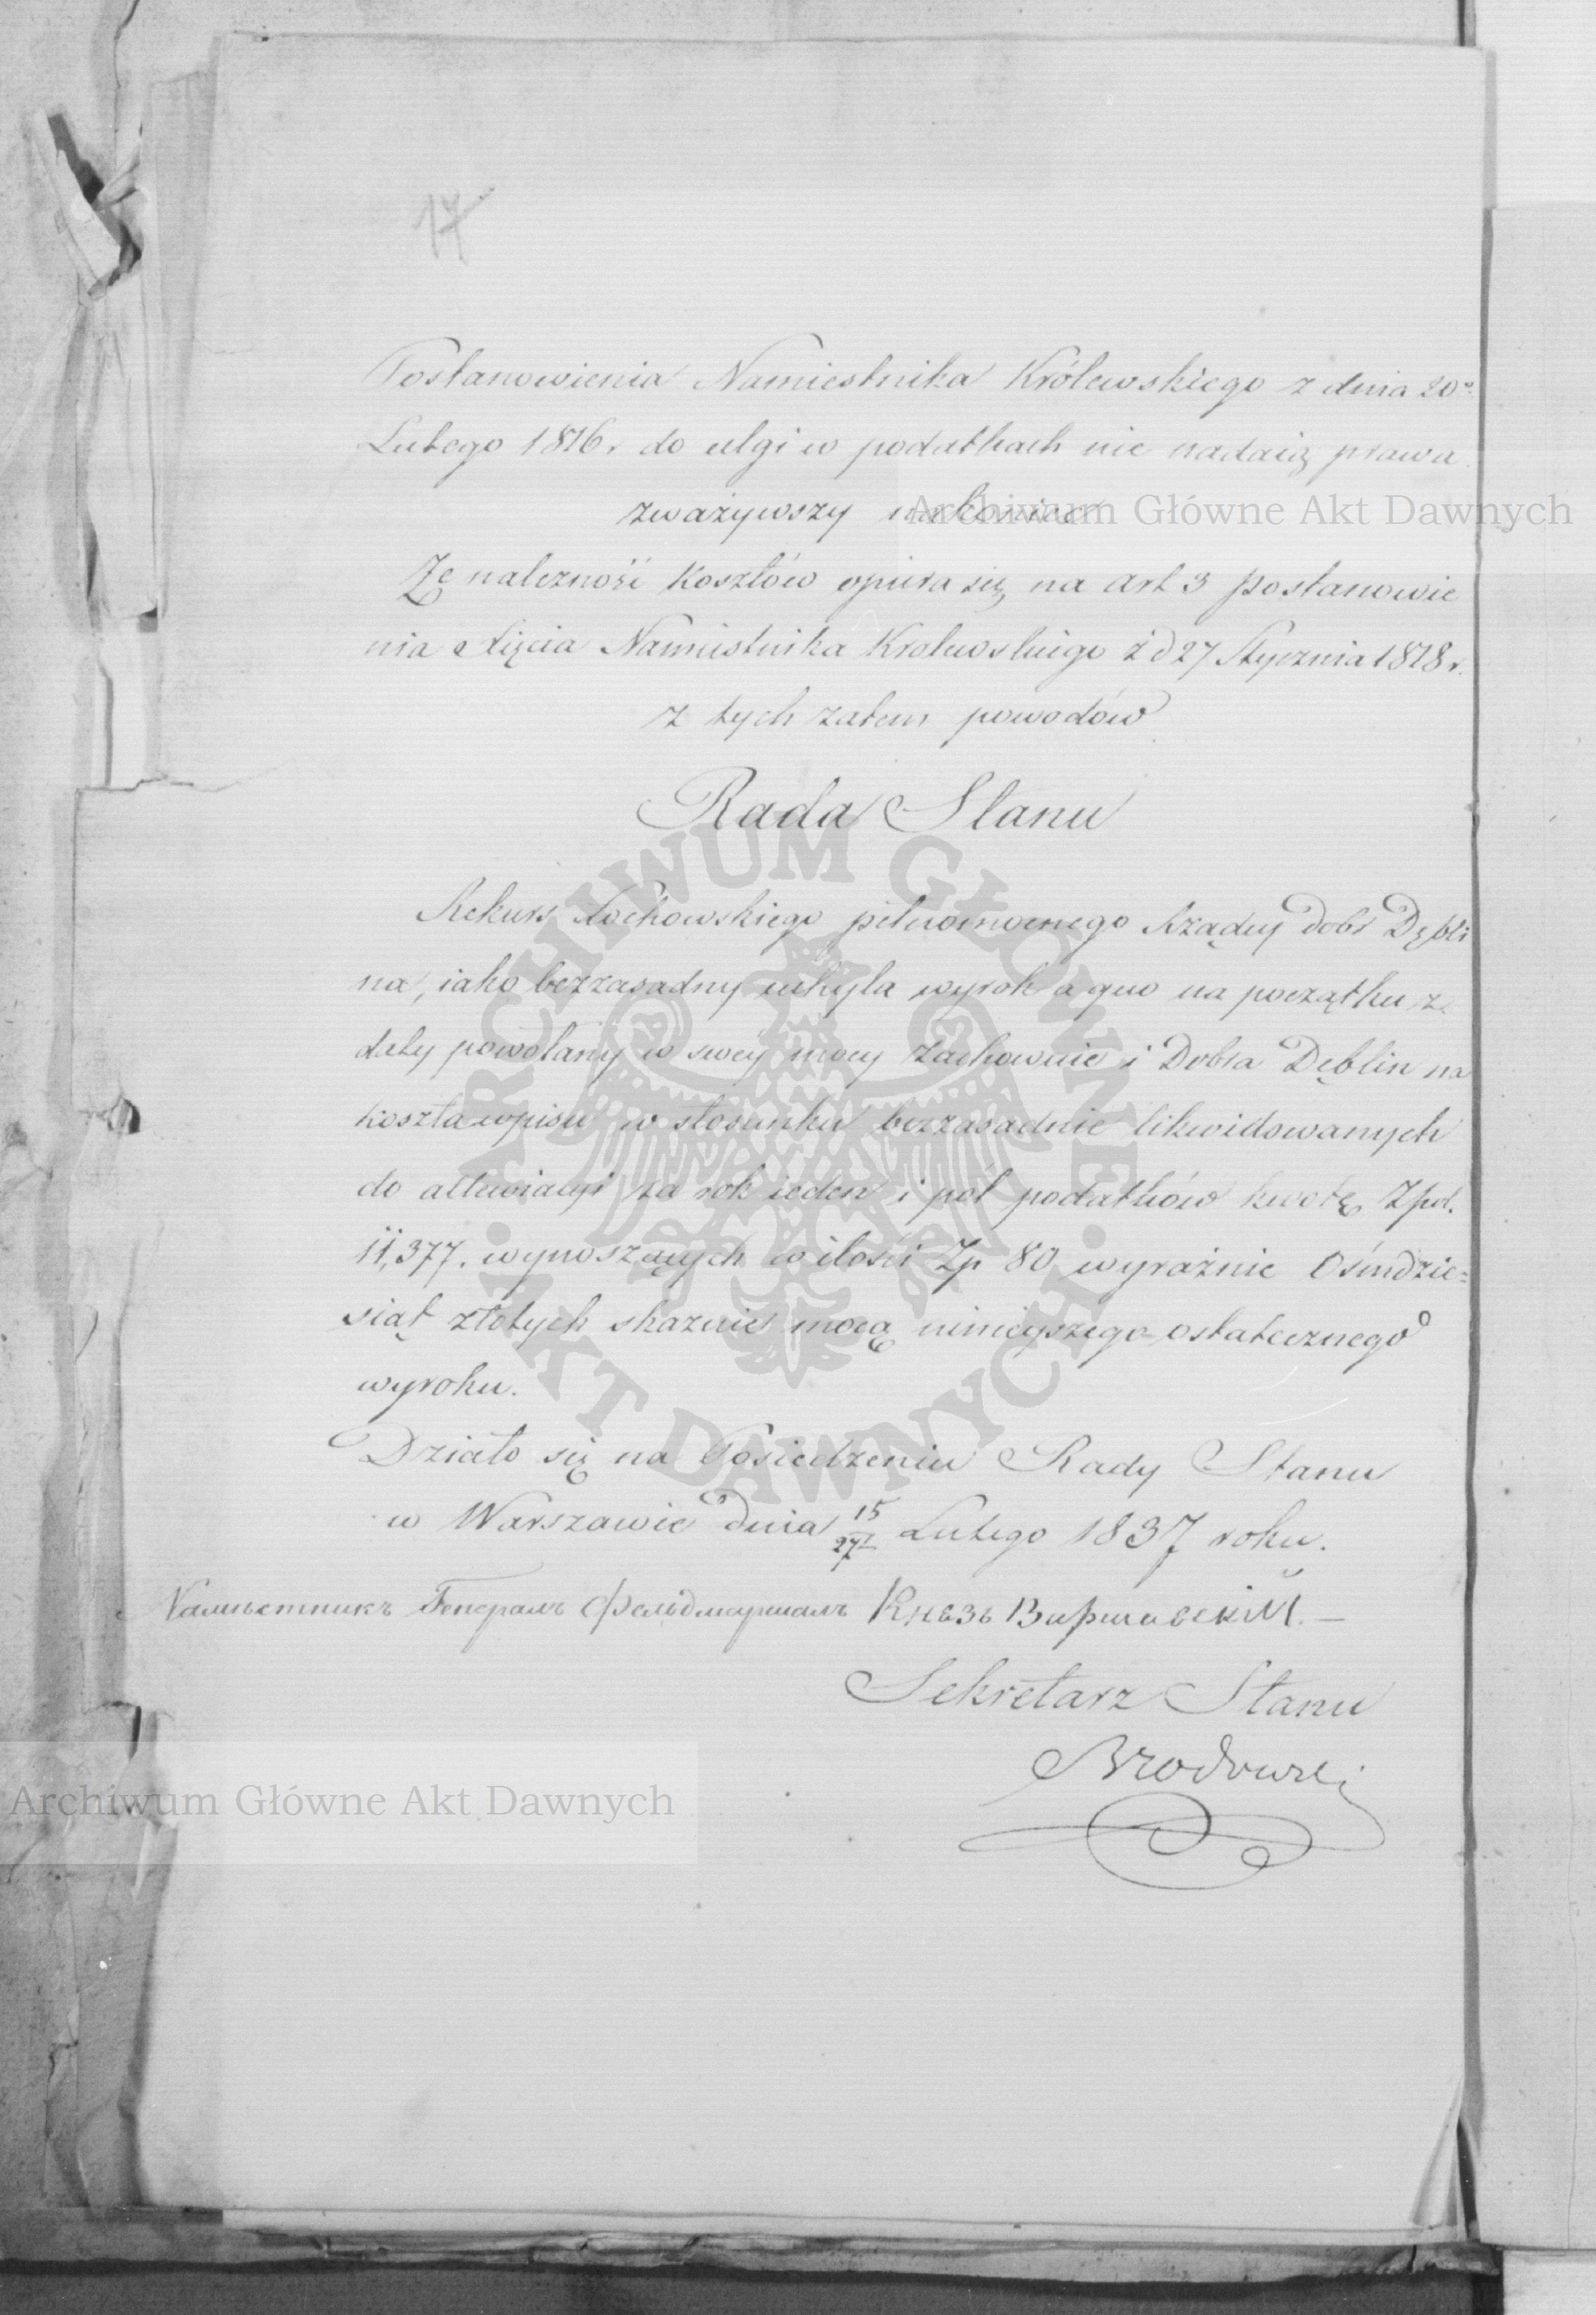 17
Postanowienia Namiestnika Królewskiego z dnia 20º
Lutego 1816 r. do ulgi w podatkach nie nadaią prawa
zważywszy nakoniec
Że należność kosztów opiera się na art 3 postanowie
nia Xięcia Namiestnika Królewskiego z d 27 Stycznia 1818 r.
z tych zatem powodów
Rada Stanu
Rekurs Łochowskiego pełnomocnego Rządcy Dóbr Dębli
na, iako bezzasadny uchyla wyrok a quo na początku z
daty powołany w swey mocy zachowuie i Dobra Dęblin na
koszta wpisu w stosunku bezzasadnie likwidowanych
do allewiacyi za rok ieden i pół podatków kwotę Zpol.
11,377. wynoszących w ilości Zp 80 wyraźnie Ośmdzie=
siąt złotych skazuie mocą ninieyszego ostatecznego
wyroku.
Działo się na Posiedzeniu Rady Stanu
w Warszawie dnia 15/27 Lutego 1837 roku.
Намѣстникъ Генералъ Фельдмаршалъ Князь Варшавскій.—
Sekretarz Stanu
Brodowski
Archiwum Główne Akt Dawnych
Archiwum Główne Akt Dawnych
ARCHIWUM GŁÓWNE
AKT DAWNYCH